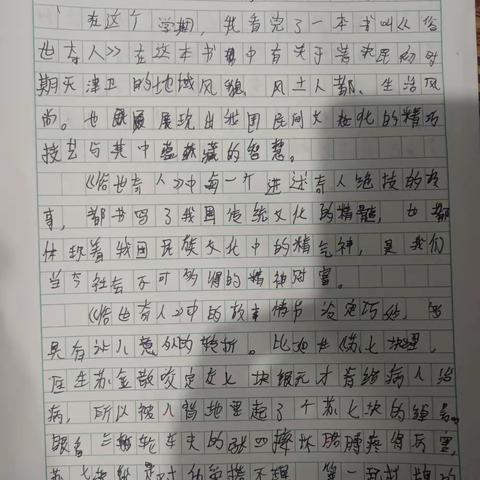 在这个学期，我看完了一本书叫《俗
世奇人》在这本书中有关于清末民初时
期天津卫的地域风貌、风土人都、生活风
尚。也展现出我国民间文化的精巧
技艺与其中蕴藏的智慧。
《俗世奇人》中每一个讲述奇人绝技的故
事，都书写了我国传统文化的精髓，也都
体现着我国民族文化中的精气神，是我们
当今社会不可多得的精神财富。
《俗世奇人》中的故事情节设定巧妙，
具有让人意外的转折。比如《苏七块》里，
医生苏金散咬定交七块银元才肯给病人治
病，所以被人背地里起了个苏七块的绰号。
眼看三轮车夫的张四摔坏胳膊疼得厉害，